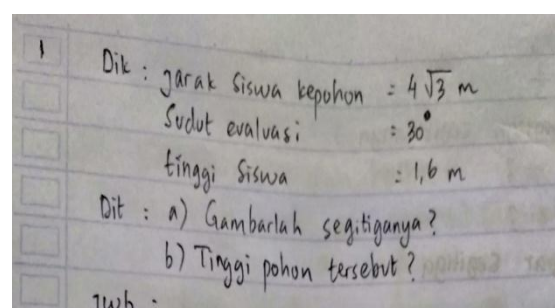 1 Dik : Jarak siswa kepohon = 4√3 m
Sudut evaluasi : 30°
tinggi siswa : 1,6 m
Dit : a) Gambarlah segitiganya?
b) Tinggi pohon tersebut?
Jwb :